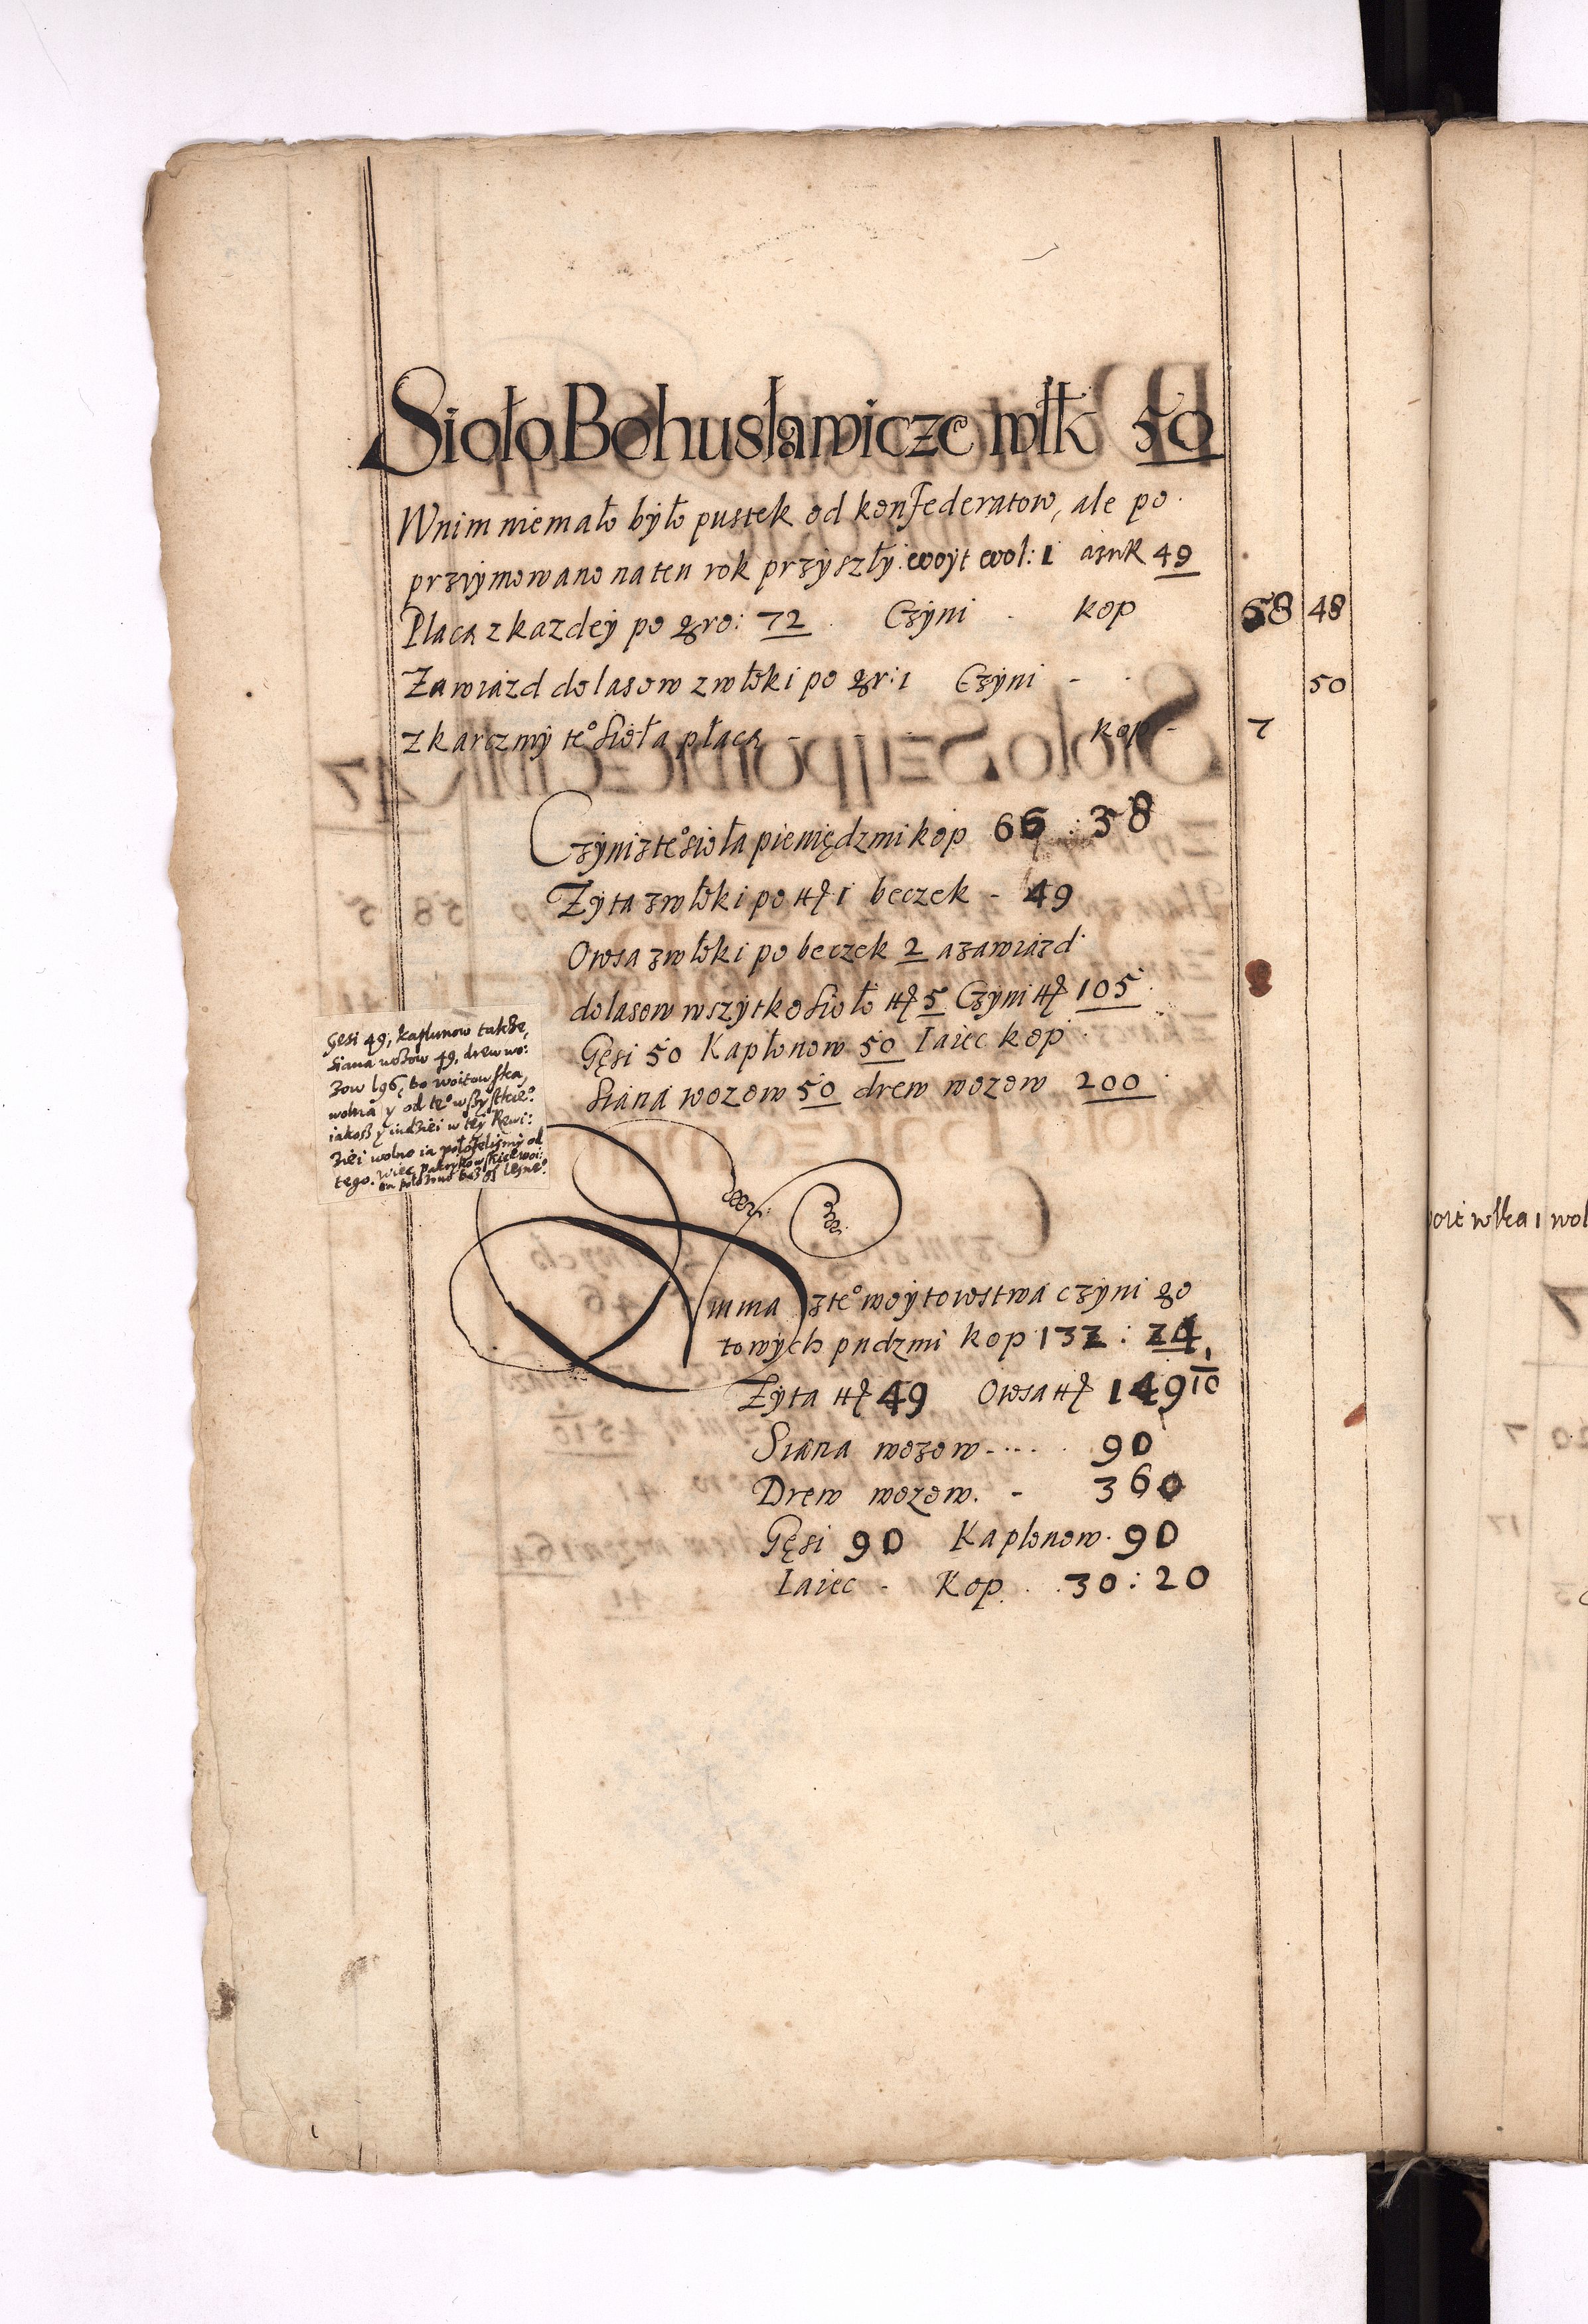 Sioło Bohusławicze włk 50
Wnim niemało było pustek od konfederatow, ale po
przyimowano na ten rok przyszły. woyt wol: 1 aznk 49
Płacą z kazdey po gro: 72 Czyni kop 58 48
Zawiazd do lasow z włoki po gr: 1 Czyni 50
z karczmy te° sioła płacą kop 7
Czyni z te° sioła pieniędzmi kop 66 : 38
Zyta z włoki po 1 beczek 49
Owsa z włoki po beczek 2 a zawiazd
do lasow wszytko sioło 5 Czyni 105
Gęsi 50 Kapłonow 50 Iaiec kop
Siana wozow 50 drew wozow 200
Gesi 49, kapłunow także,
siana wozow 49, drew wo:
zow 196, bo woitowska
wolna y od te° wszystkie°
iakosz y indziei w tey Rewi:
ziei wolno ia położelismy od
tego.
Summa z te° woytowstwa czyni go
towych pndzmi kop 132 : 24
Zyta 49 Owsa 149 1/10
Siana wozow 90
Drew wozow 360
Gęsi 90 Kapłonow 90
Iaiec Kop 30 : 20